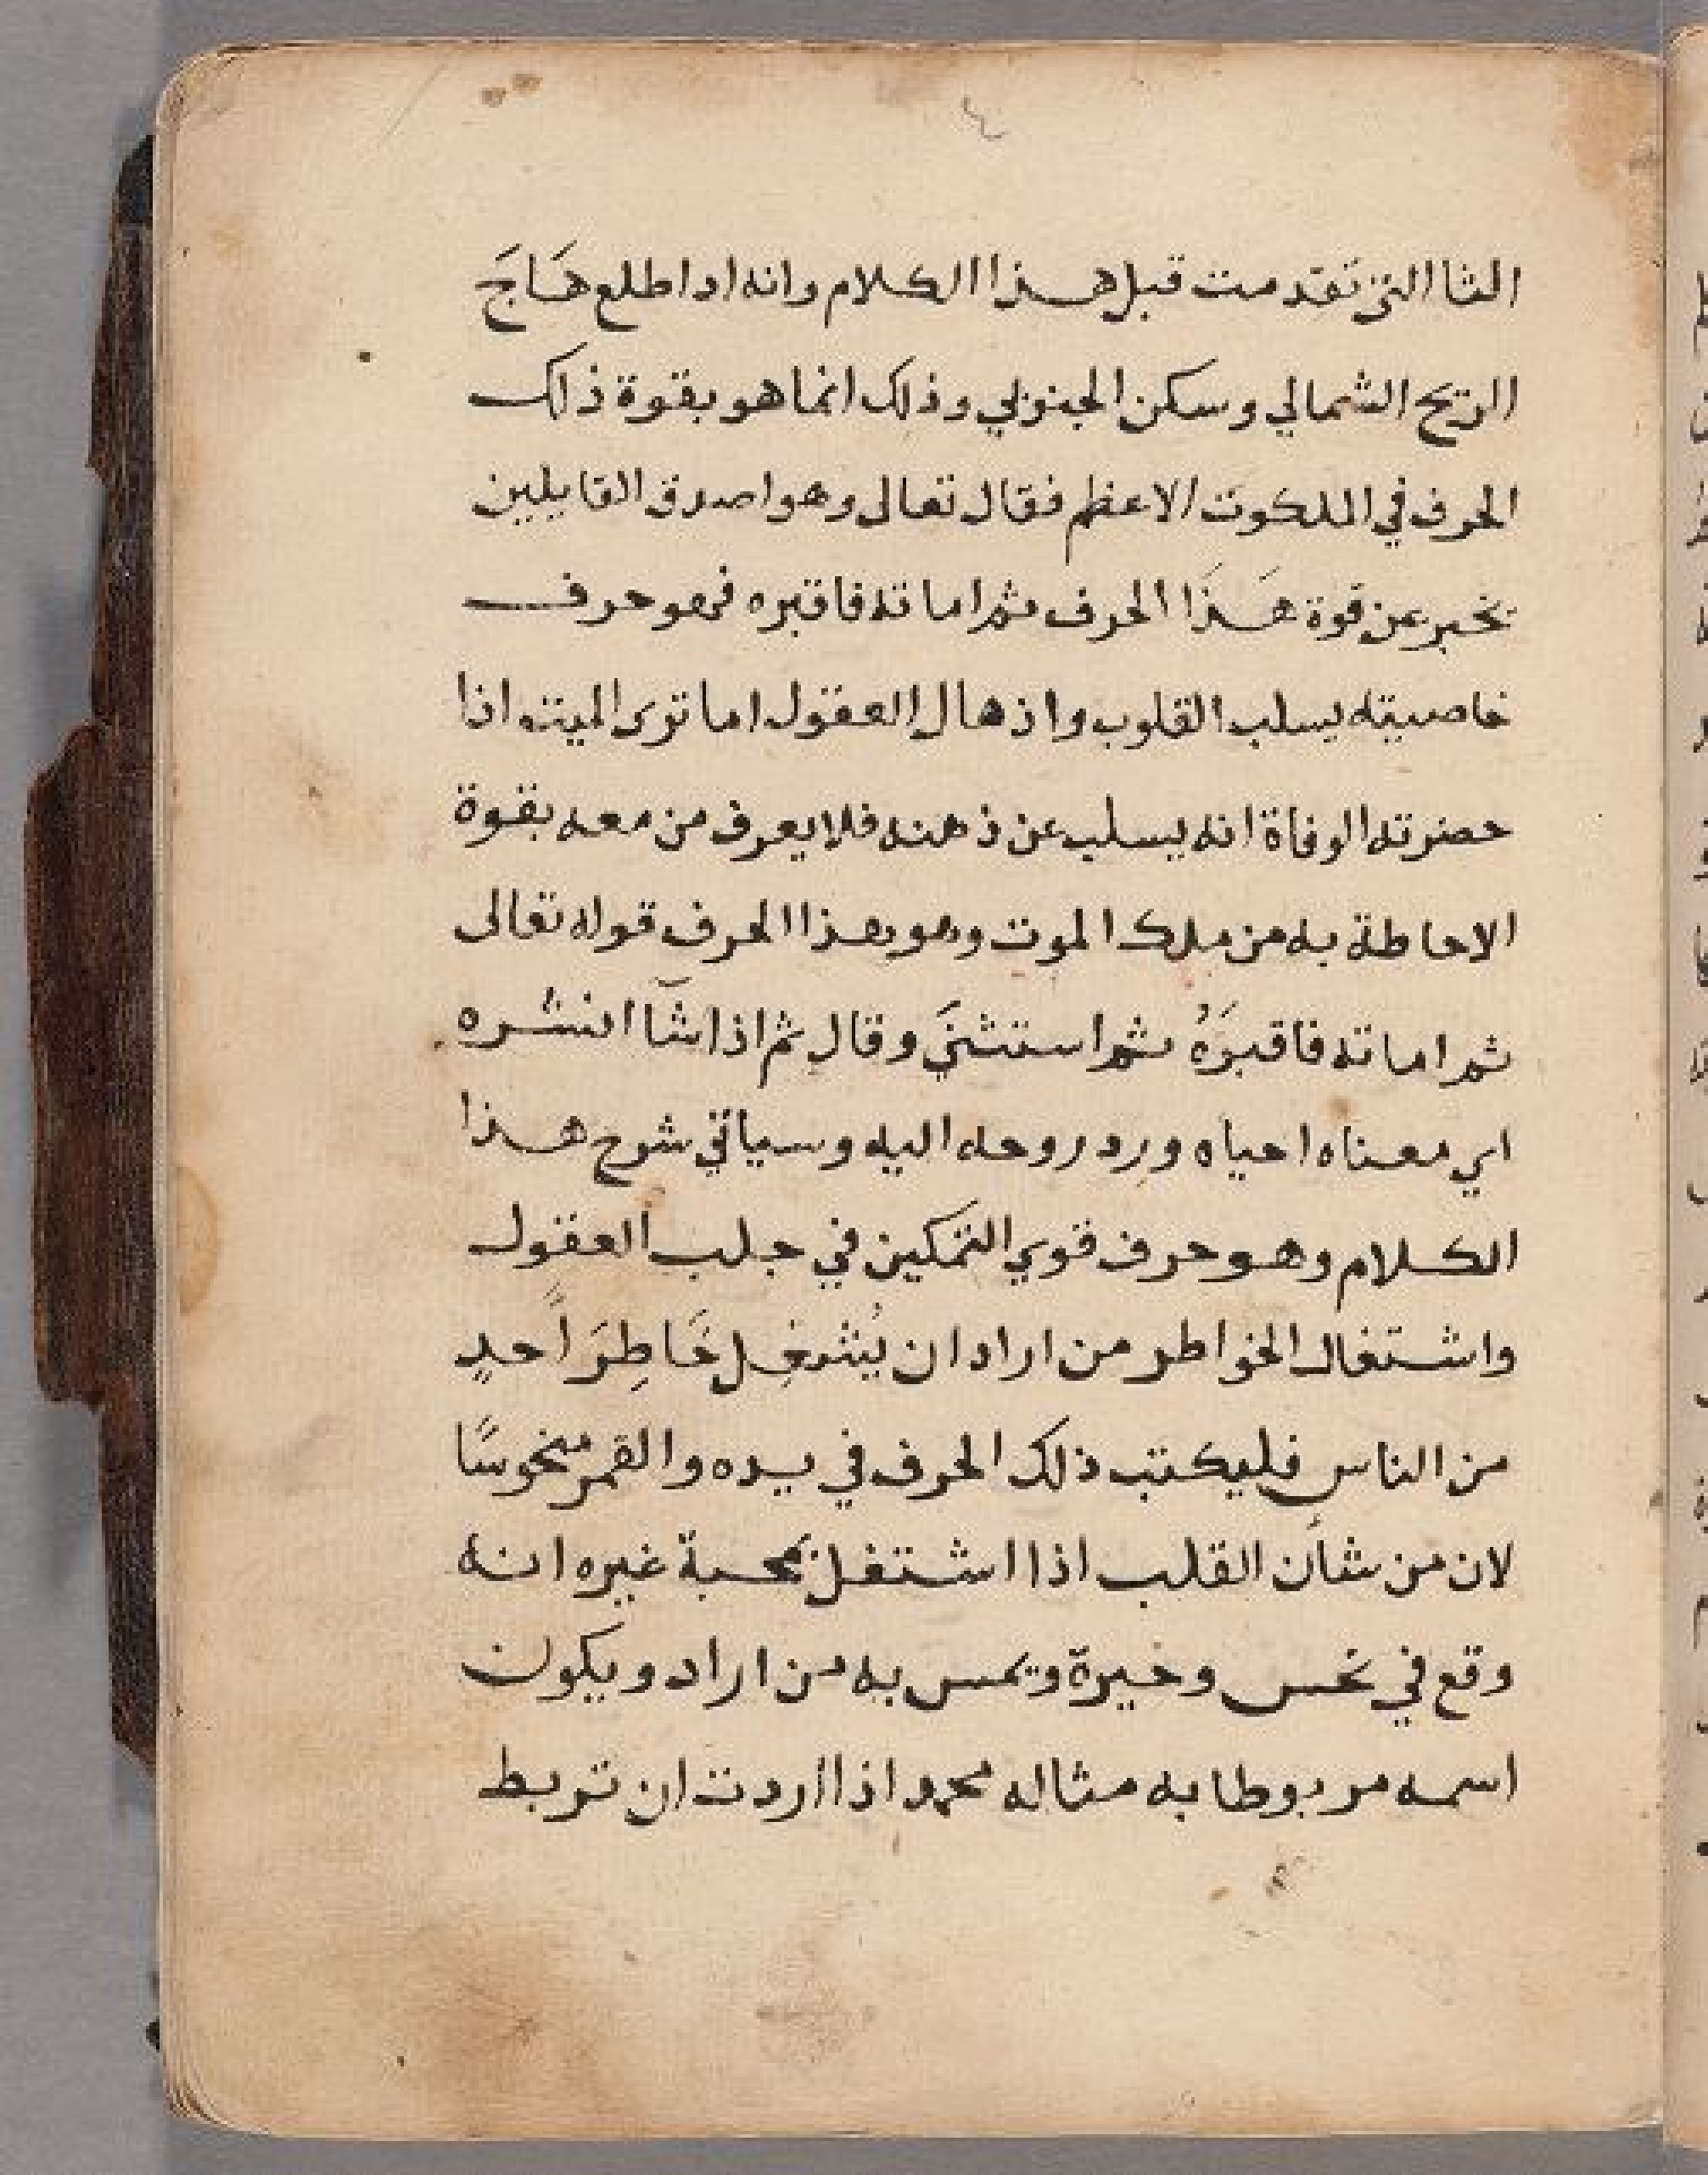 ٤
الثا التي تقدمت قبل هذا الكلام وانه اذا طلع هَاجَ
الريح الشمالي وسكن الجنوبي وذلك انما هو بقوة ذلك
الحرف في الملكوت الاعظم فقال تعالى وهو اصدق القايلين
يخبر عن قوة هَذَا الحرف ثم اماته فاقبره فهو حرف
خاصيته يسلب القلوب واذهال العقول اما ترى الميت اذا
حضرته الوفاة انه يسلب عن ذهنه فلا يعرف من معه بقوة
الاحاطة به من ملك الموت وهو بهذا الحرف قوله تعالى
ثم اماته فاقبرَهُ ثم استثنَى وقال ثم اذا شآ انشره
اي معناه احياه ورد روحه اليه وسياتي شرح هذا
الكلام وهو حرف قوي التمكين في جلب العقول
واشتغال الخواطر من اراد ان يُشغِل خَاطِرَ اَحدٍ
من الناس فليكتب ذلك الحرف في يده والقمر منحوسًا
لان من شأن القلب اذا اشتغل بمحبة غيره انه
وقع في نحس وحيرة ويمس به من اراد ويكون
اسمه مربوطا به مثاله محمد اذا اردت ان تربط